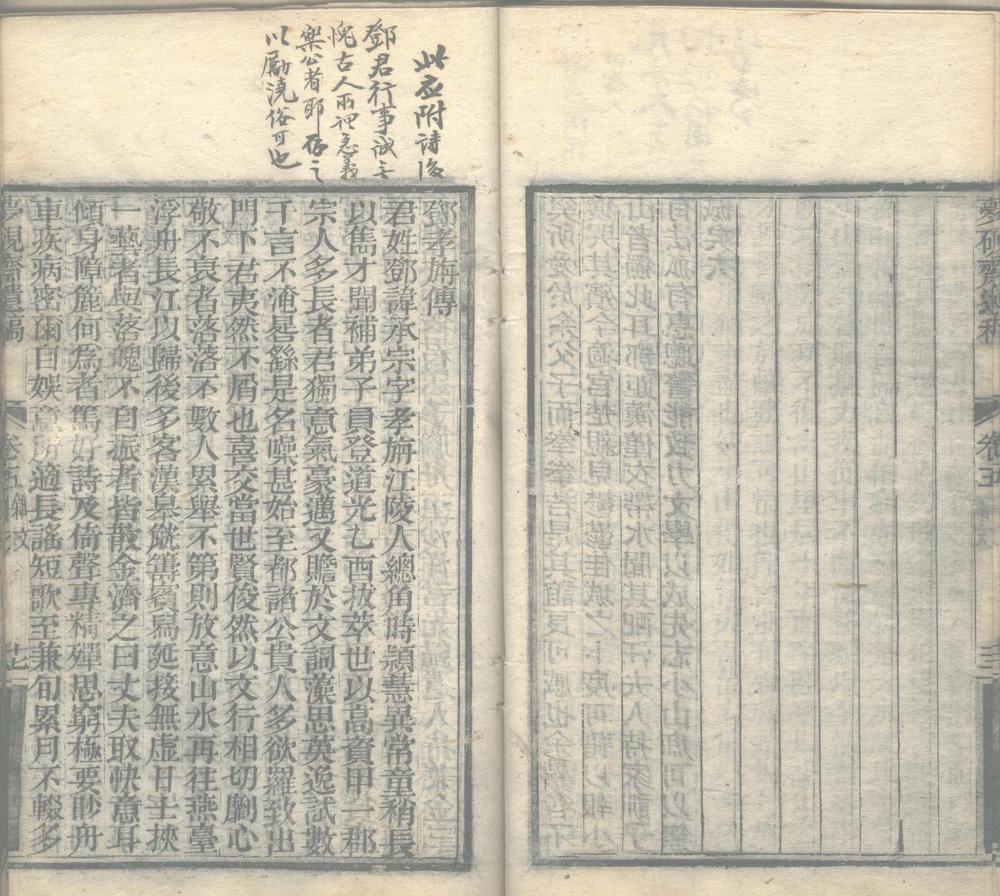 夢硯齋遺稿
卷五
三
此應附詩後
鄧君行事誠無
愧古人而裡急義
樂公者耶存之
以勵澆俗可也
鄧孝旃傳
君姓鄧諱承宗字孝旃江陵人總角時穎慧異常童稍長
以雋才聞補弟子員登道光乙酉拔萃世以高資甲一郡
宗人多長者君獨意氣豪邁又贍於文詞藻思英逸試數
千言不淹晷繇是名噪甚始至都諸公貴人多欲羅致出
門下君夷然不屑也喜交當世賢俊然以文行相切劘心
敬不衰者落落不數人累舉不第則放意山水再往燕臺
浮舟長江以歸後多客漢臯觥籌賓舄延接無虛日士挾
一藝者與落魄不自振者皆散金濟之曰丈夫取快意耳
傾身障簏何為者篤好詩及倚聲專精殫思窮極要眇舟
車疾病密爾自娛意所適長謠短歌至兼旬累月不輟多
夢硯齋遺稿
卷五
雜文